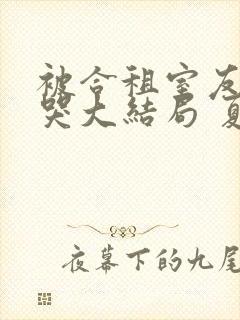 被合租室友
哭大结局 夏
夜幕下的九尾